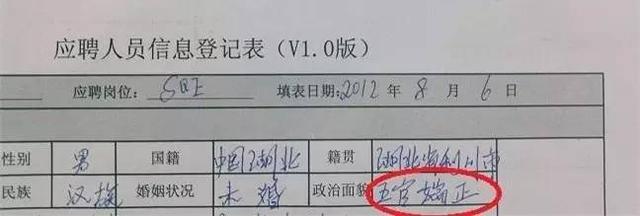 应聘人员信息登记表（V1.0版）
应聘岗位： SQE 填表日期:2012 年 8 月 6 日
性别 男 国籍 中国湖北 籍贯 湖北省利川市
民族 汉族 婚姻状况 未婚 政治面貌 五官端正